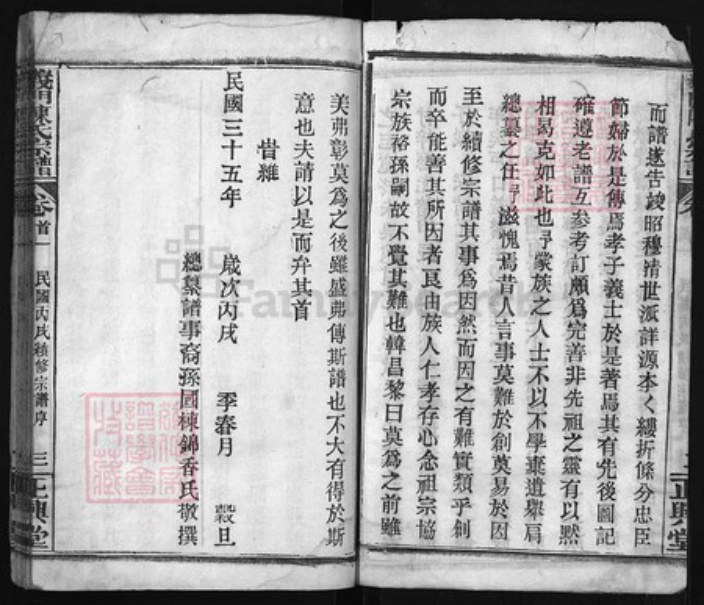 而譜遂告竣昭穆清世派詳源本〱縷折條分忠臣
節婦於是傳焉孝子義士於是著焉其有先後圖記
確遵老譜互參考訂頗爲完善非先祖之靈有以黙
相曷克如此也予蒙族之人士不以不學棄遺舉肩
總纂之任予滋愧焉昔人言事莫難於創莫易於因
至於續修宗譜其事爲因然而因之有難實類乎創
而卒能善其所因者良由族人仁孝存心念祖宗協
宗族裕孫嗣故不覺其難也韓昌黎曰莫爲之前雖
美弗彰莫爲之後雖盛弗傳斯譜也不大有得於斯
意也夫請以是而弁其首
旹維
民國三十五年 歲次丙戌 季春月 穀旦
總纂譜事裔孫國棟錦香氏敬撰
義門陳氏宗譜 卷首一 民國丙戌續修宗譜序 三 正興堂
正興堂
FamilySearch